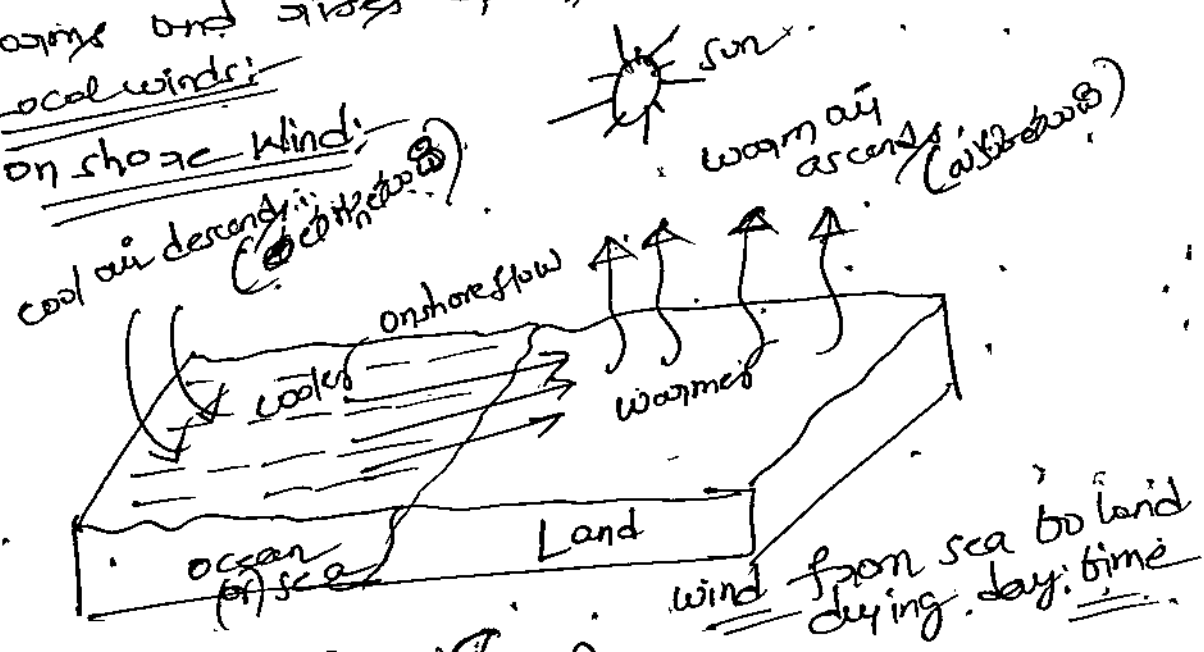 and
ocal winds:-
on shore Wind:-
sun
warm air
ascends:
cool air descends:
onshore flow
cooler
warmer
ocean
(or) sea
Land
wind from sea to land
duying day: time